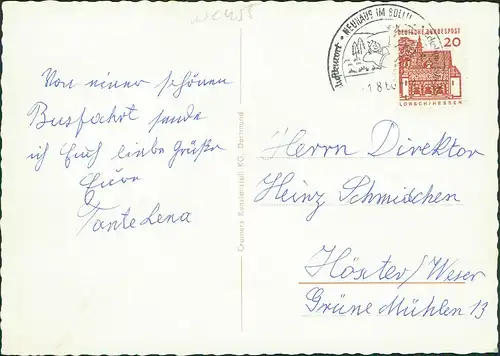 NEUHAUS IM SOLLI
Luftkurort
1.8.66
DEUTSCHE BUNDESPOST
20
LORSCH/HESSEN
Von einer schönen
Busfahrt sende
ich Euch liebe Grüße
Eure
Tante Lena
Cramers Kunstanstalt KG, Dortmund
Herrn Direktor
Heinz Schmidchen
Höxter/Weser
Grüne Mühlen 13